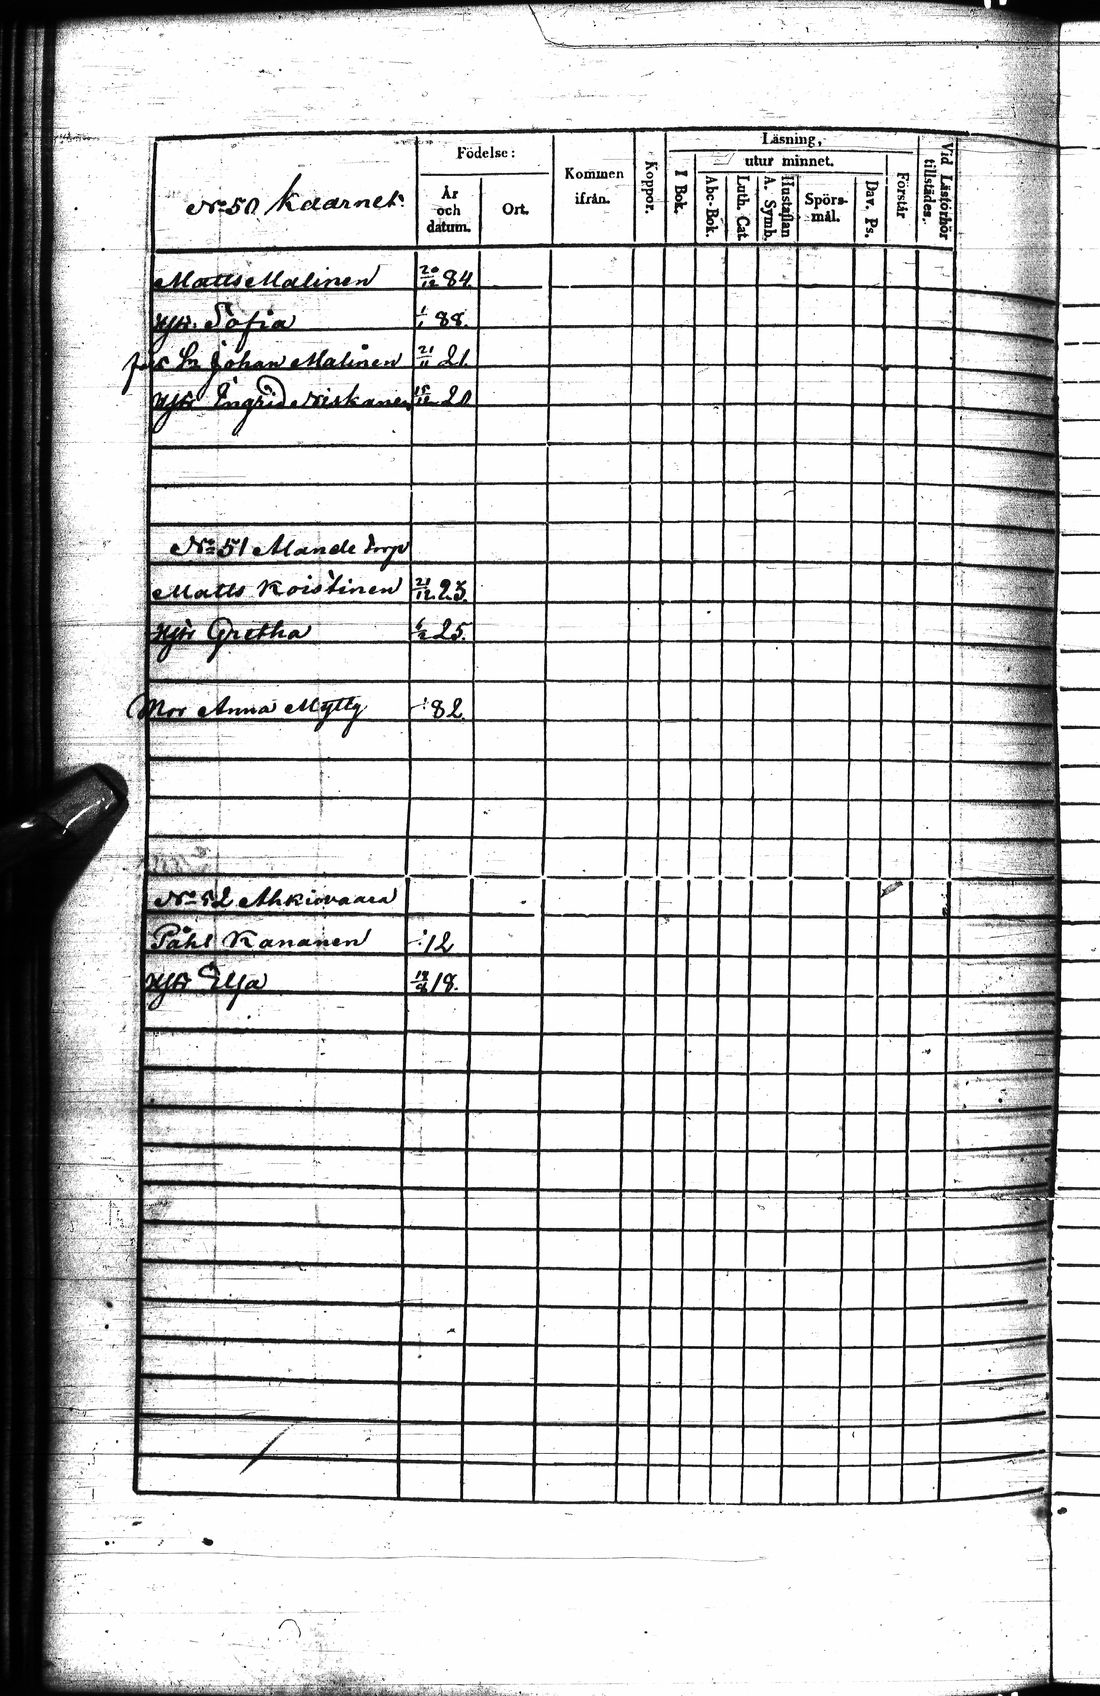 No 50 Kaarnet.
Födelse:
År och datum.
Ort.
Kommen ifrån.
Koppor.
Läsning,
utur minnet.
I Bok.
Abc-Bok.
Luth. Cat.
Hustaflan A. Symb.
Spörs-mål.
Dav. Ps.
Förstår
Vid Läsförhör tillstädes.
Matts Malinen 20/12 84.
Hju. Sofia 1/1 88.
Johan Malinen 21/11 21.
Hju Ingrid Niskanen 20
No 51 Torp
Matts Koistinen 21/12 25.
Hju Gretha 6/2 25.
Mor Anna Mylly 82
No 52 Ahkiovaara
Påhl Kananen 12
Hju Elja 18.